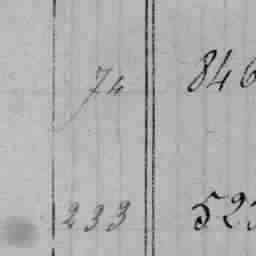 74 846
233 523